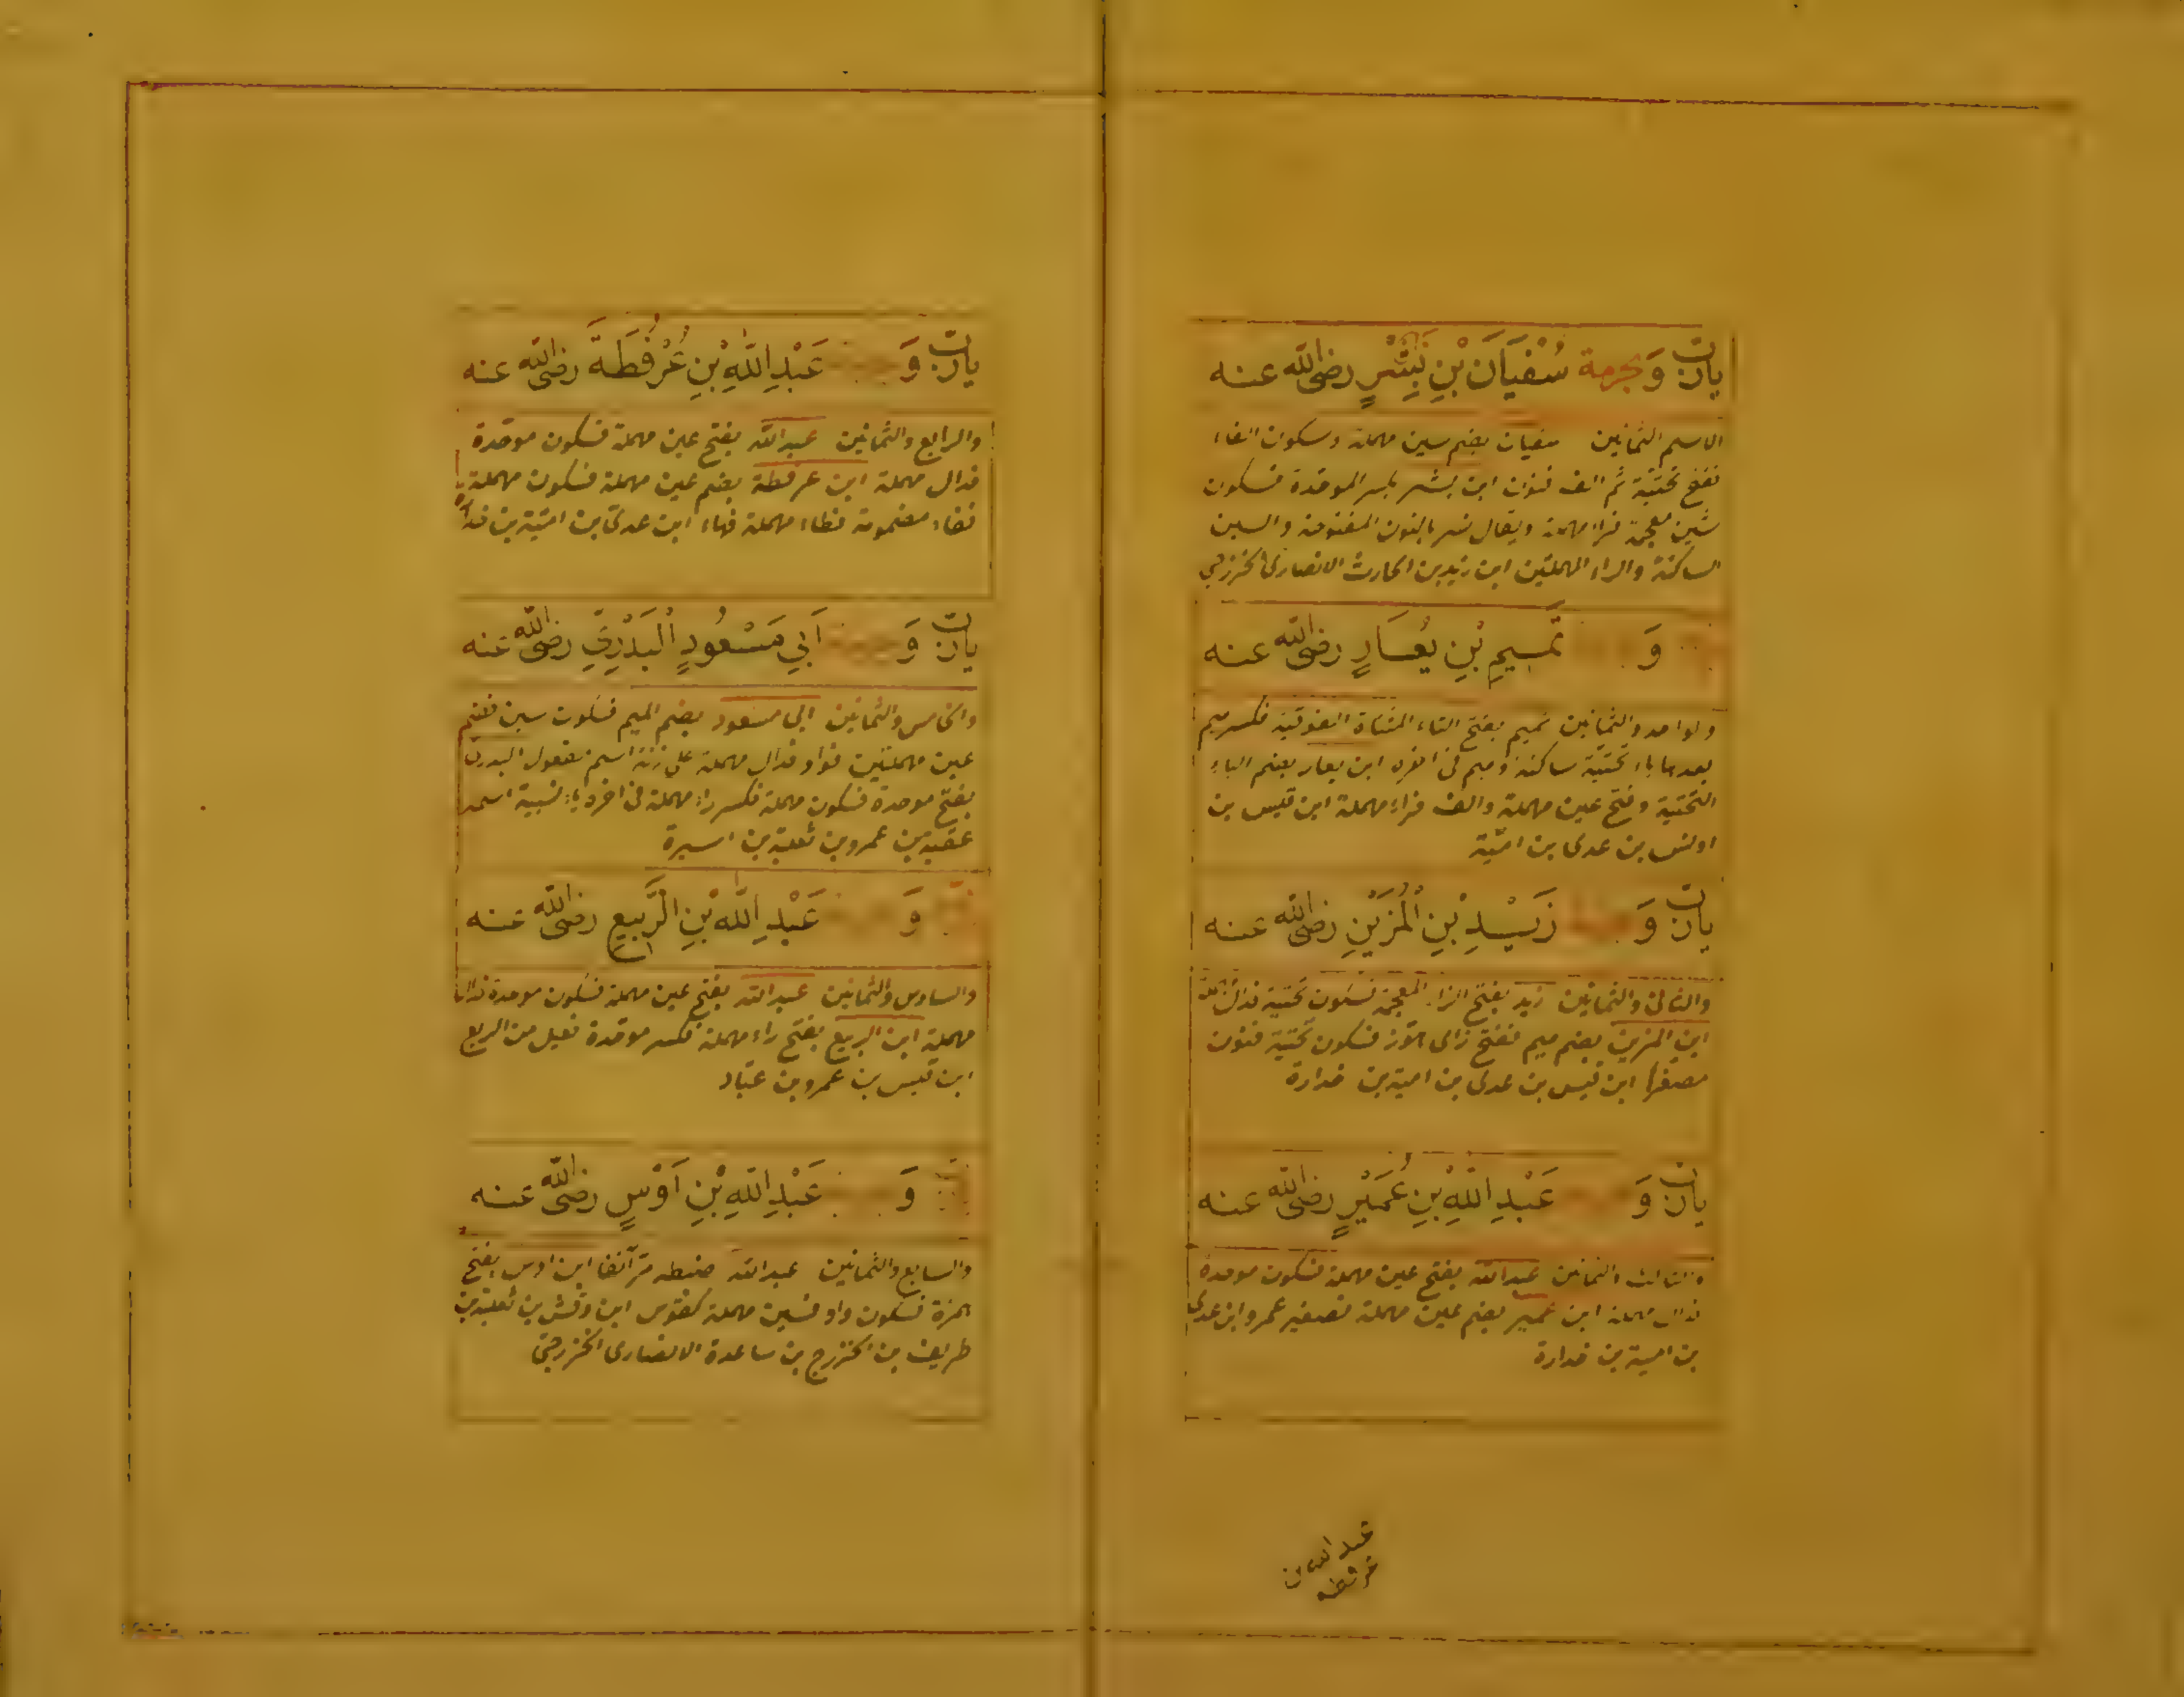 يارب وَبحرمة سُفْيَانَ بْنِ بِشْرٍ رضى الله عنه
الاسم الثمانين سفيان بضم سين مهملة وسكون الفاء
ففتح تحتية ثم الف فنون ابن بشر بكسر الموحدة فسكون
شين معجمة فراء مهملة ويقال نسر بالنون المفتوحة والسين
الساكنة والراء المهملتين ابن زيد بن الحارث الانصارى الخزرجى
وَ تَمِيمِ بْنِ يُعَارٍ رضى الله عنه
والواحد والثمانين تميم بفتح التاء المثناة الفوقية فكسر ميم
بعدها ياء تحتية ساكنة وميم فى اخره ابن يعار بضم الياء
التحتية وفتح عين مهملة والف فراء مهملة ابن قيس بن
اوس بن عدى بن امية
يارب وَ زَيْدِ بْنِ الْمُزَيْنِ رضى الله عنه
والثانى والثمانين زيد بفتح الزاء المعجمة فسكون تحتية فدال مهملة
ابن المزين بضم ميم ففتح زاى هوز فسكون تحتية فنون
مصغرا ابن قيس بن عدى بن امية بن خدارة
يارب وَ عَبْدِ اللهِ بْنِ عُمَيْرٍ رضى الله عنه
والثالث والثمانين عبد الله بفتح عين مهملة فسكون موحدة
فدال مهملة ابن عمير بضم عين مهملة تصغير عمرو ابن عدى
بن امية بن خدارة
عبد الله بن
عرفطه
يارب وَ عَبْدِ اللهِ بْنِ عُرْفُطَةَ رضى الله عنه
والرابع والثمانين عبد الله بفتح عين مهملة فسكون موحدة
فدال مهملة ابن عرفطة بضم عين مهملة فسكون مهملة
ففاء مضمومة فطاء مهملة فهاء ابن عدى بن امية بن خدارة
يارب وَ اَبِي مَسْعُودٍ الْبَدْرِيِّ رضى الله عنه
والخامس والثمانين ابى مسعود بضم الميم فسكون سين فضم
عين مهملتين فواو فدال مهملة على زنة اسم مفعول البدرى
بفتح موحدة فسكون مهملة فكسر راء مهملة فى اخره ياء نسبية اسمه
عقبة بن عمرو بن ثعلبة بن اسيرة
وَ عَبْدِ اللهِ بْنِ الرَّبِيعِ رضى الله عنه
والسادس والثمانين عبد الله بفتح عين مهملة فسكون موحدة فدال
مهملة ابن الربيع بفتح راء مهملة فكسر موحدة فعيل من الربع
ابن قيس بن عمرو بن عباد
وَ عَبْدِ اللهِ بْنِ اَوْسٍ رضى الله عنه
والسابع والثمانين عبد الله ضبطه مر آنفا ابن اوس بفتح
همزة فسكون واو فسين مهملة كقوس ابن وقش بن ثعلبة بن
طريف بن الخزرج بن ساعدة الانصارى الخزرجى